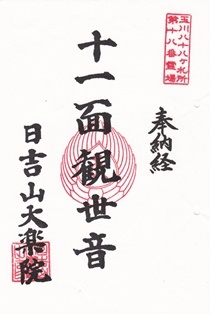 玉川八十八ヶ所
第十八番霊場
奉納経
十一面観世音
日吉山大楽院